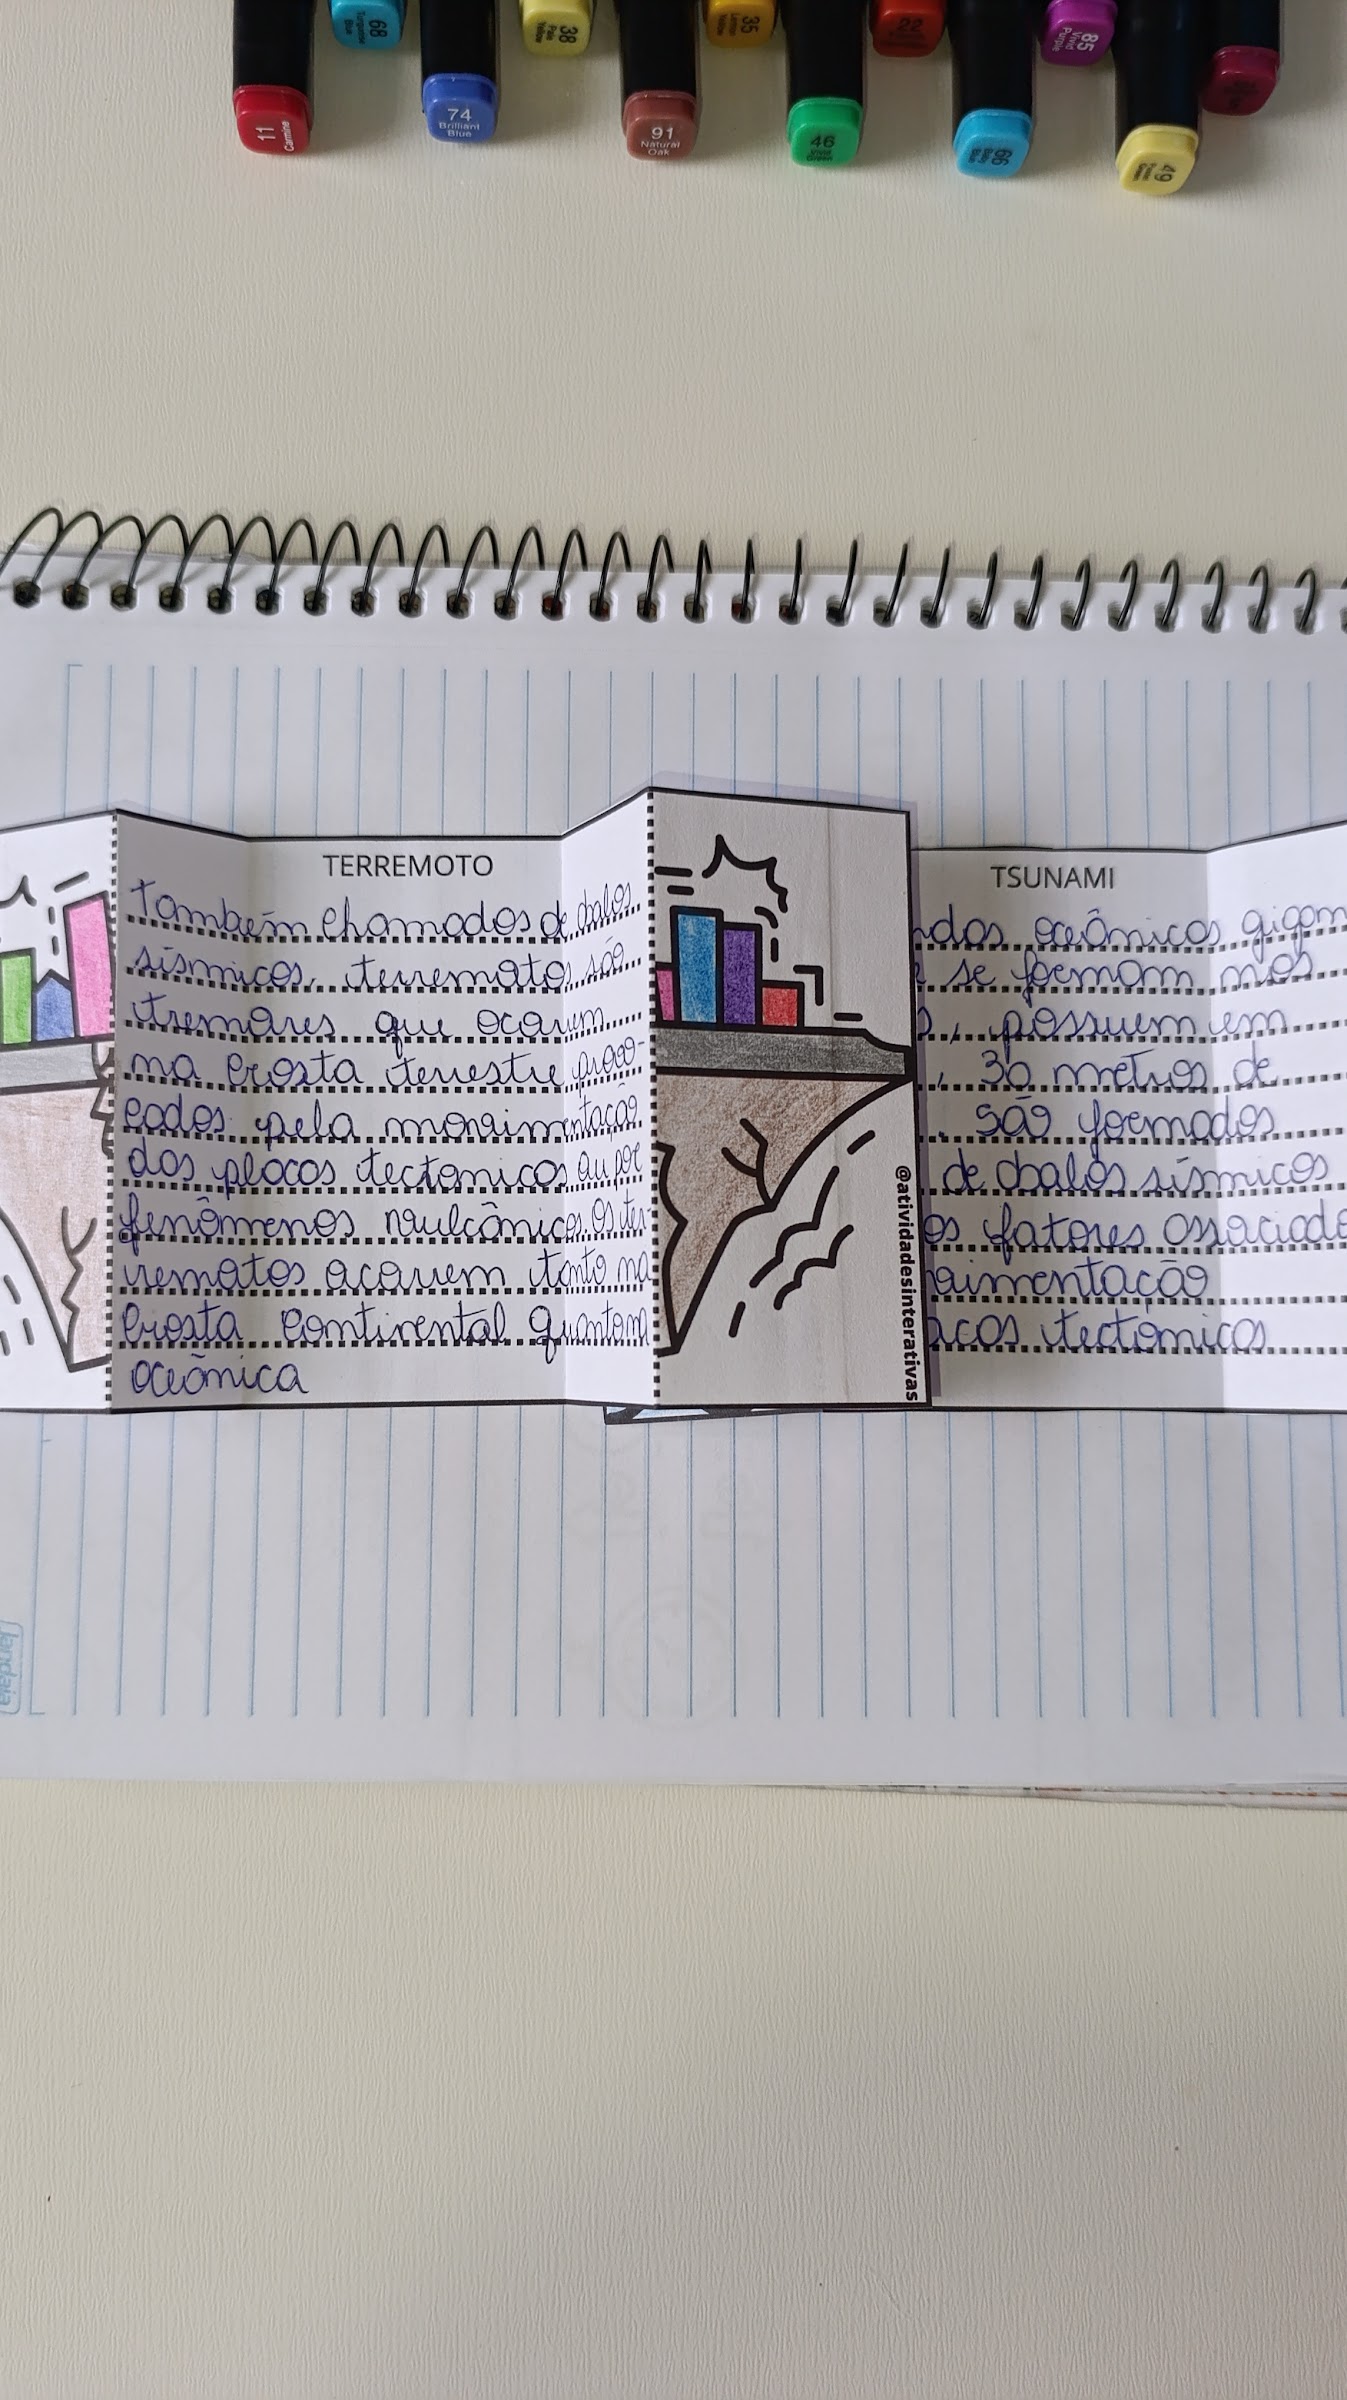 11
Carmine
68
Turquoise
Blue
74
Brilliant
Blue
38
Pale
Yellow
91
Natural
Oak
35
Lemon
Yellow
46
Vivid
Green
22
66
Baby
Blue
85
Vivid
Purple
49
TERREMOTO
também chamados de abalos
sísmicos, terremotos são
tremores que ocorrem
na crosta terrestre provo-
cados pela movimentação
dos placas tectonicas ou por
fenômenos vulcânicos. Os ter-
remotos ocorrem tanto na
crosta continental quanto na
oceânica
@atividadesinterativas
TSUNAMI
ndas oceânicas gigan
e se formam nos
s, possuem em
, 30 metros de
. são formados
de abalos sísmicos
os fatores associado
vimentação
acas tectonicas
Jandaia